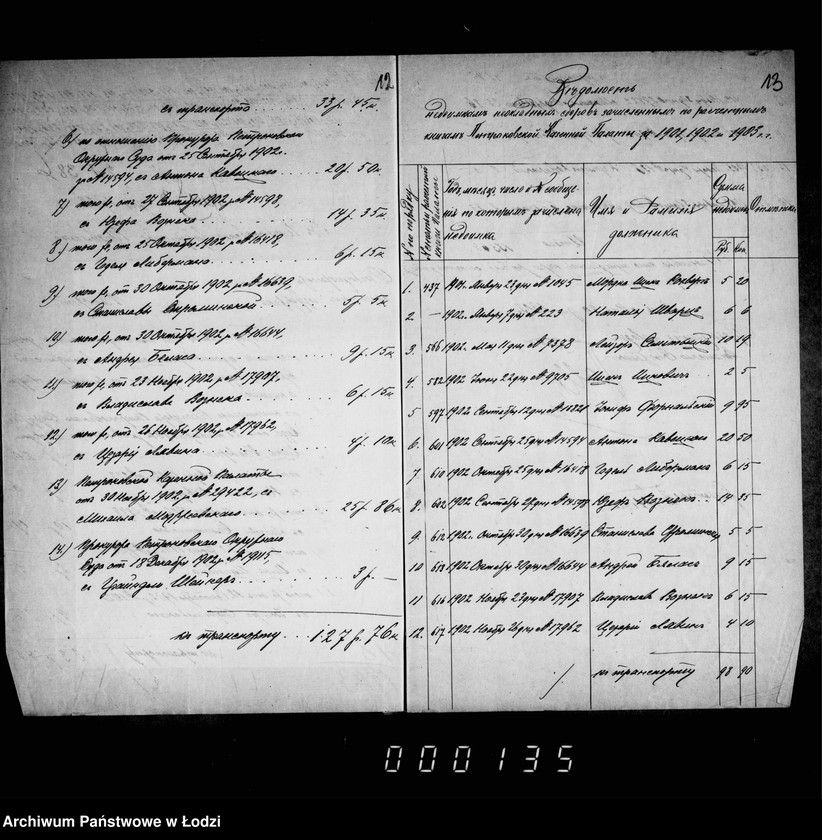 12
съ транспорта . . . . . 33 р. 45 к.
6) по отношенію Прокурора Петроковскаго
Окружнаго Суда отъ 25 Сентября 1902 г.
за № 14594, съ Антона Кавецкаго . . . 20 р. 50 к.
7) того же, отъ 24 Сентября 1902 р. № 14598,
съ Юзефа Вознека . . . 14 р. 35 к.
8) того же, отъ 25 Октября 1902 р. № 16418,
съ Годеля Либермана . . . 6 р. 15 к.
9) того же, отъ 30 Октября 1902 р. № 16639,
съ Станислава . . . 5 р. 5 к.
10) того же, отъ 30 Октября 1902 р. № 16644,
съ Андрея . . . 9 р. 15 к.
11) того же, отъ 23 Ноября 1902 р. № 17907,
съ Владислава Вознека . . . 6 р. 15 к.
12) того же, отъ 26 Ноября 1902 р. № 17962,
съ Цезарія Лявина . . . 4 р. 10 к.
13) Петроковской Казенной Палаты
отъ 30 Ноября 1902 р. № 29422, съ
Михаила . . . 25 р. 86 к.
14) Прокурора Петроковскаго Окружнаго
Суда отъ 18 Декабря 1902 р. № 19115,
съ . . . 3 р. —
къ транспорту . . . 127 р. 76 к.
13
Вѣдомость
недоимкамъ неокладныхъ сборовъ зачисленнымъ по расчетнымъ
книгамъ Петроковской Казенной Палаты за 1901, 1902 и 1903 г.г.
№ по порядку
№ статьи расчетной книги Палаты
Годъ, мѣсяцъ, число и № сообще-
нія по которымъ зачислена
недоимка
Имя и Фамилія
должника
Сумма
недоимки
Руб. Коп.
Отмѣтка
1. 437 1901. Января 23 дня № 1045 Мордка 5 20
2 — 1902. Января 7 дня № 223 Наталія Шварцъ 6 6
3. 566 1902 Мая 11 дня № 7378 Лейзоръ 10 19
4. 582 1902 Іюня 22 дня № 9705 2 5
5 597 1902 Сентября 12 дня Іосифъ 9 95
6. 601 1902 Сентября 25 дня № 14594 Антонъ Кавецкій 20 50
7 610 1902 Октября 25 дня № 16418 Годель Либерманъ 6 15
8. 602 1902 Сентября 24 дня Юзефъ Вознекъ 14 35
9 612 1902 Октября 30 дня № 16639 Станиславъ 5 5
10 613 1902 Октября 30 дня № 16644 Андрей 9 15
11 616 1902 Ноября 23 дня № 17907 Владиславъ Вознекъ 6 15
12. 617 1902 Ноября 26 дня № 17962 Цезарій Лявинъ 4 10
къ транспорту 98 90
000135
Archiwum Państwowe w Łodzi